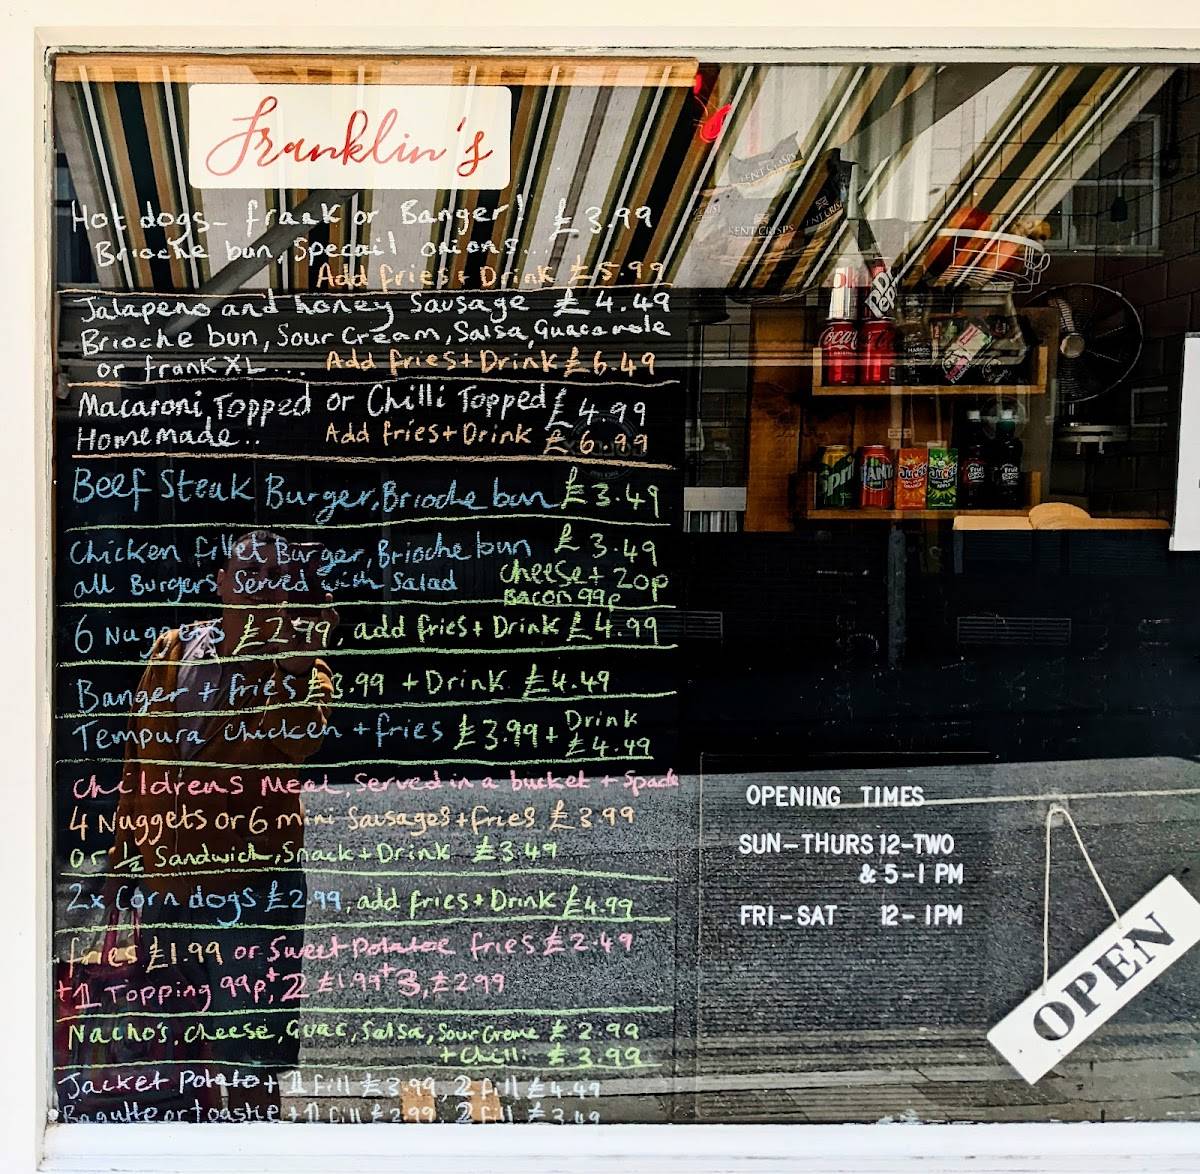 Franklin's
Hot dogs - frank or Banger! £3.99
Brioche bun, Specail onions...
Add fries + Drink £5.99
Jalapeno and honey Sausage £4.49
Brioche bun, Sour Cream, Salsa, Guacamole
or frank XL... Add fries + Drink £6.49
Macaroni Topped or Chilli Topped £4.99
Homemade.. Add fries + Drink £6.99
Beef Steak Burger, Brioche bun £3.49
Chicken fillet Burger, Brioche bun £3.49
all Burgers Served with Salad Cheese + 20p
Bacon 99p
6 Nuggets £2.99, add fries + Drink £4.99
Banger + fries £3.99 + Drink £4.49
Tempura chicken + fries £3.99 + Drink
£4.49
Childrens Meal, Served in a bucket + Spade
4 Nuggets or 6 mini Sausages + fries £3.99
or 1/2 Sandwich, Snack + Drink £3.49
2x Corn dogs £2.99, add fries + Drink £4.99
fries £1.99 or Sweet Potatoe fries £2.49
+1 Topping 99p, + 2 £1.99 + 3, £2.99
Nacho's, cheese, Guac, Salsa, Sour Creme £2.99
+ Chilli £3.99
Jacket Potato + 1 fill £3.99, 2 fill £4.49
Bagutte or toastie + 1 fill £2.99, 2 fill £3.49
KENT CRISPS
KENT CRISPS
Coca-Cola
Dr Pepper
Sprite
FANTA
JUCEE
JUCEE
Fruit Shoot
Fruit Shoot
OPENING TIMES
SUN-THURS 12-TWO
& 5-1 PM
FRI-SAT 12-1PM
OPEN